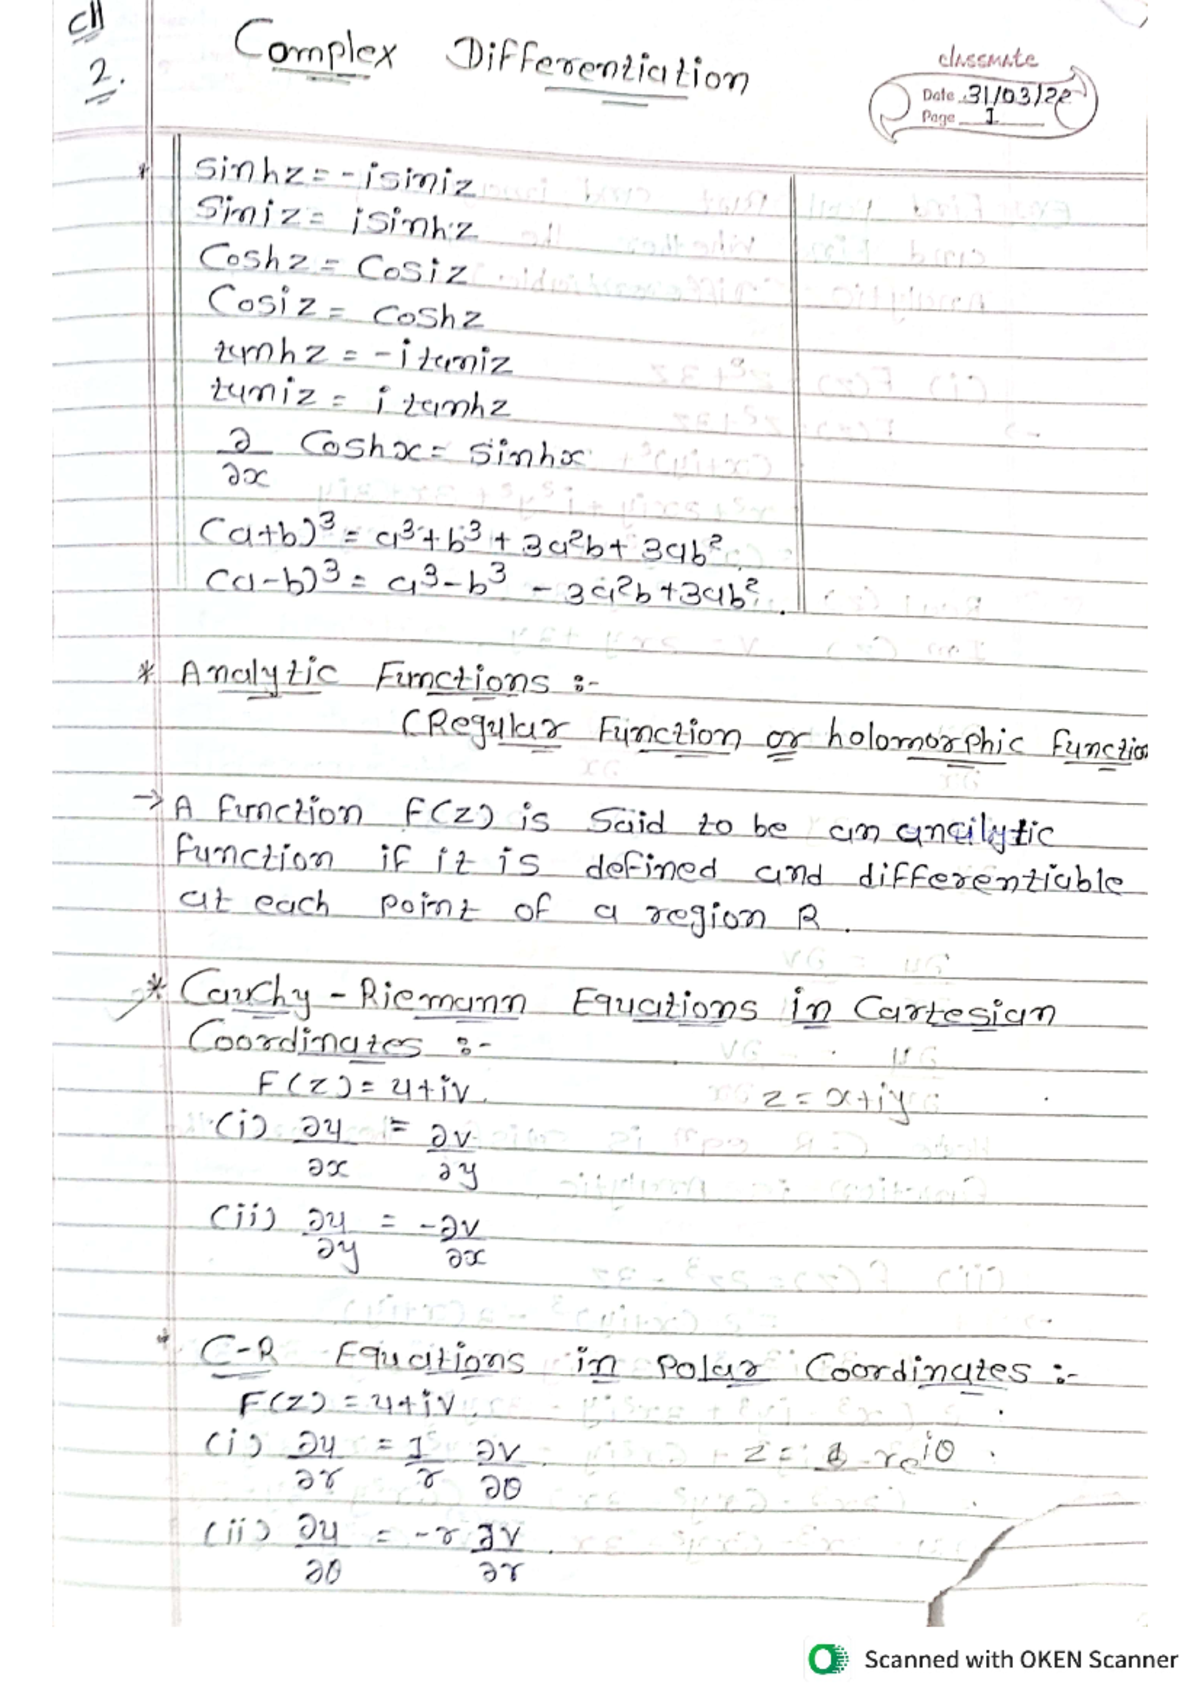 CH
2.
Complex Differentiation
classmate
Date 31/03/22
Page 1
* sinhz = -isiniz
Siniz = isinhz
Coshz = Cosiz
Cosiz = coshz
tanhz = -itaniz
taniz = itanhz
∂/∂x Coshx = sinhx
(a+b)³ = a³+b³+3a²b+3ab²
(a-b)³ = a³-b³-3a²b+3ab²
* Analytic Functions :-
(Regular Function or holomorphic Function
→ A function F(z) is said to be an analytic
function if it is defined and differentiable
at each point of a region R.
* Cauchy-Riemann Equations in Cartesian
Coordinates :-
F(z) = u+iv. z = x+iy
(i) ∂u/∂x = ∂v/∂y
(ii) ∂u/∂y = -∂v/∂x
* C-R Equations in Polar Coordinates :-
F(z) = u+iv.
(i) ∂u/∂r = 1/r ∂v/∂θ z = re^iθ.
(ii) ∂u/∂θ = -r ∂v/∂r.
Scanned with OKEN Scanner